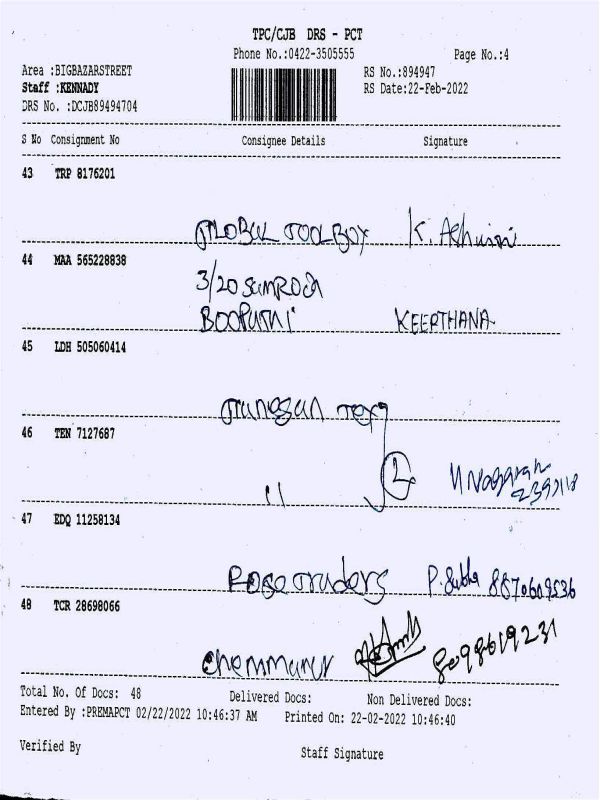 TPC/CJB DRS - PCT
Phone No.:0422-3505555 Page No.:4
Area :BIGBAZARSTREET RS No.:894947
Staff :KENNADY RS Date:22-Feb-2022
DRS No. :DCJB89494704
S No Consignment No Consignee Details Signature
43 TRP 8176201
GLOBAL TOOL BOX K. Ashwini
44 MAA 565228838
3/20
BOOPATHI KEERTHANA
45 LDH 505060414
Ganesan Tex
46 TEN 7127687
" 2
47 EDQ 11258134
Rose Traders P. Subha 8870609536
48 TCR 28698066
Chemmanur 8098619231
Total No. Of Docs: 48 Delivered Docs: Non Delivered Docs:
Entered By :PREMAPCT 02/22/2022 10:46:37 AM Printed On: 22-02-2022 10:46:40
Verified By Staff Signature